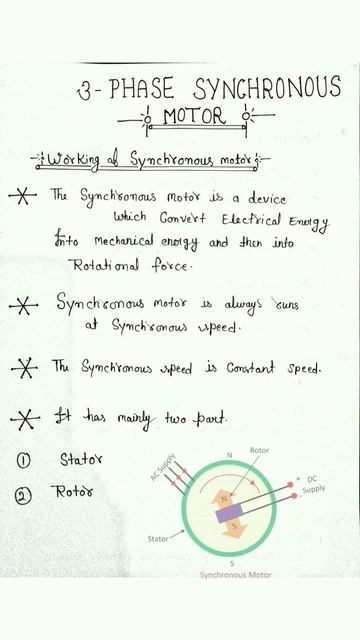 3-PHASE SYNCHRONOUS
MOTOR
Working of Synchronous motor
The Synchronous motor is a device
which Convert Electrical Energy
Into Mechanical energy and then into
Rotational force.
Synchronous motor is always runs
at Synchronous speed.
The Synchronous speed is Constant Speed.
It has mainly two part.
① Stator
② Rotor
AC Supply
N
Rotor
+ DC
- Supply
N
S
Stator
S
Synchronous Motor